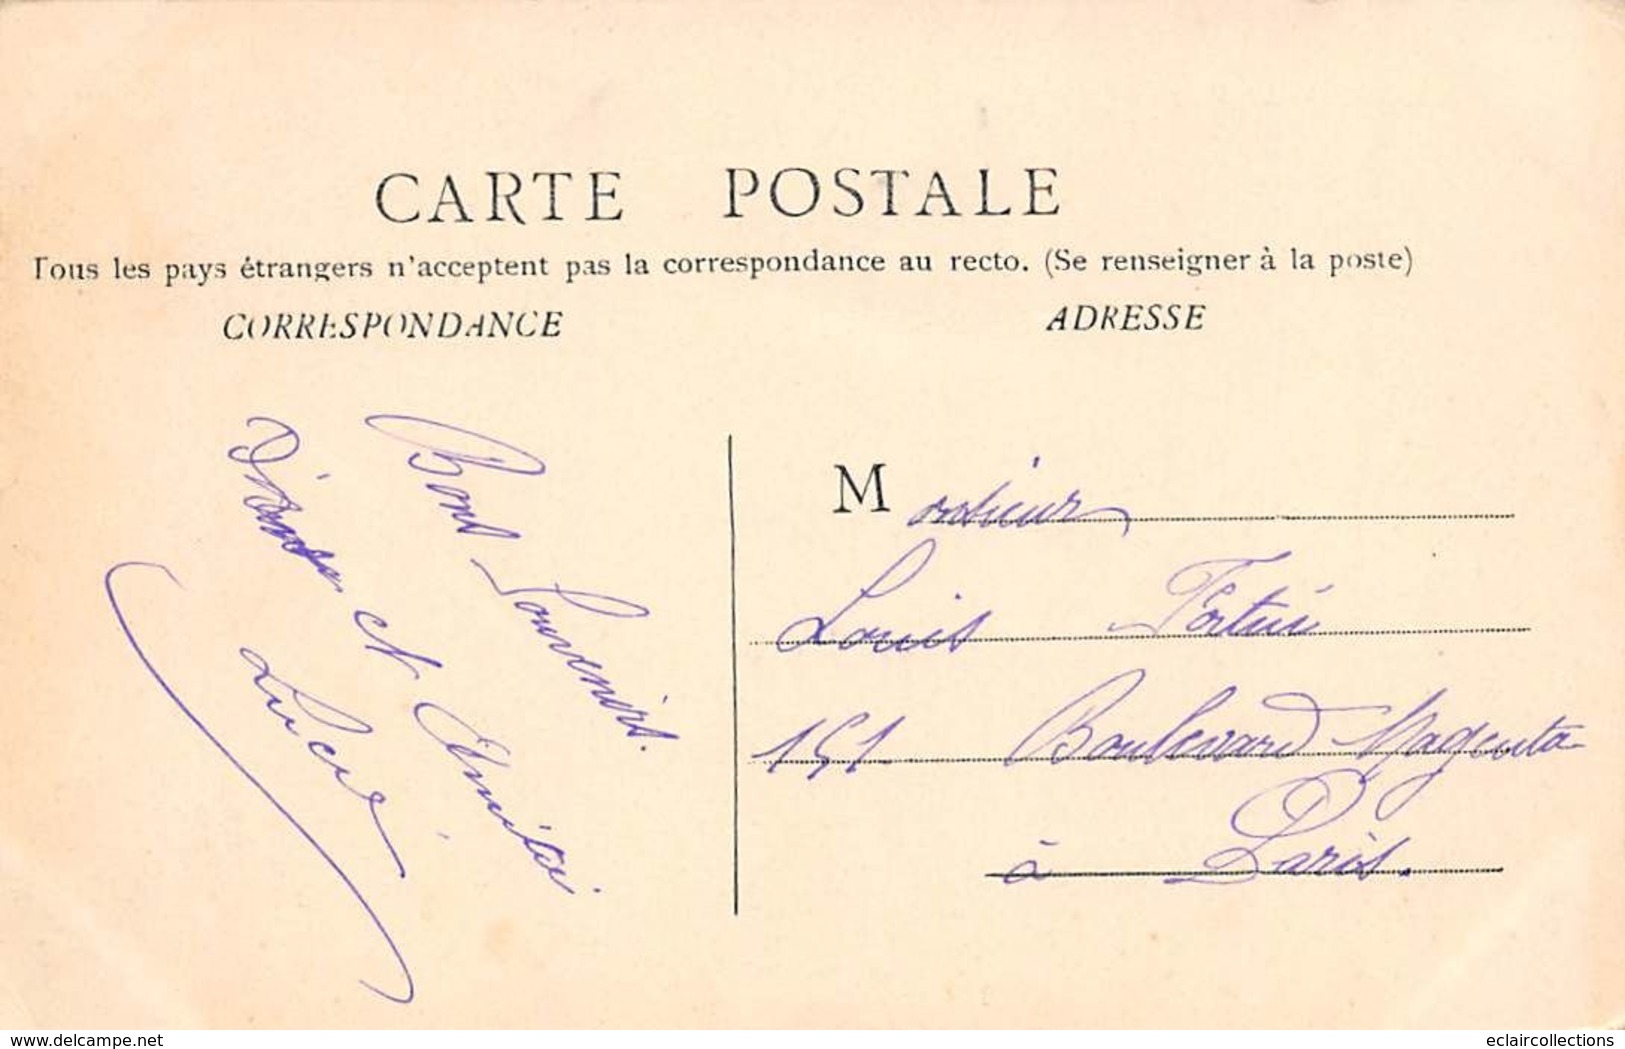 CARTE POSTALE
Tous les pays étrangers n'acceptent pas la correspondance au recto. (Se renseigner à la poste)
CORRESPONDANCE
ADRESSE
Bons Souvenirs.
et Amitié
Lucie
Monsieur
Louis
151 Boulevard Magenta
à Paris.
delcampe.net
eclaircollections